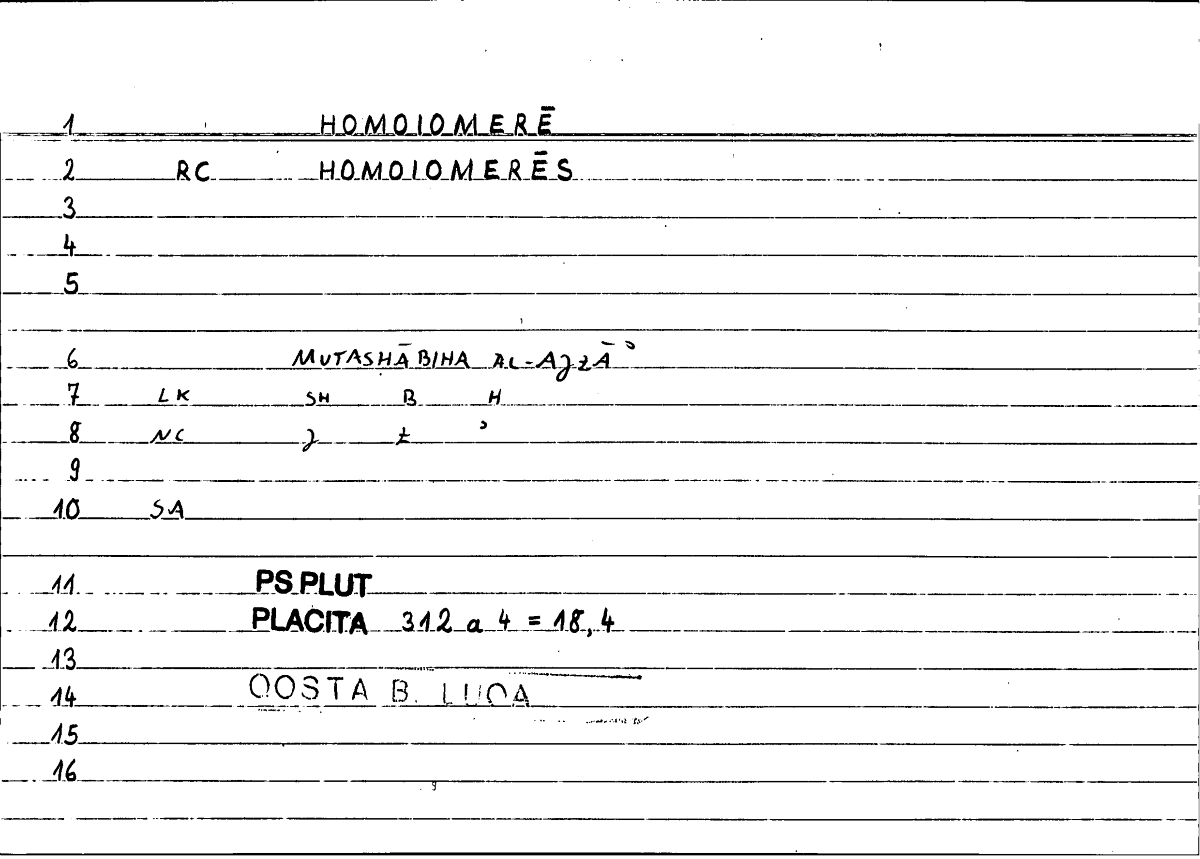 1 HOMOIOMERĒ
2 RC HOMOIOMERĒS
3
4
5
6 MUTASHĀBIHA AL-AJZĀʾ
7 LK SH B H
8 NC J Z ʾ
9
10 SA
11 PS PLUT
12 PLACITA 312 a 4 = 18,4
13
14 QOSTA B. LUQA
15
16